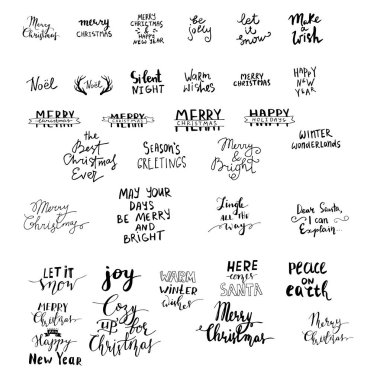 Merry
Christmas
merry
CHRISTMAS
MERRY
CHRISTMAS
&
HAPPY
NEW YEAR
be
jolly
let
it
snow
Make
a
Wish
Noël
Noël
Silent
NIGHT
Warm
wishes
MERRY
CHRISTMAS
HAPPY
NEW
YEAR
MERRY
CHRISTMAS
MERRY
CHRISTMAS
MERRY
CHRISTMAS
HAPPY
HOLIDAYS
the
Best
Christmas
Ever
SEASON'S
GREETINGS
Merry
&
Bright
WINTER
WONDERLANDS
Merry
Christmas
MAY YOUR
DAYS
BE MERRY
AND
BRIGHT
Jingle
ALL THE
Way
Dear Santa,
I can
Explain...
LET IT
snow
joy
WARM
WINTER
wishes
HERE
comes
SANTA
PEACE
ON
earth
MERRY
Christmas
AND
Happy
NEW YEAR
Cozy
up for
Christmas
Merry
Christmas
Merry
Christmas